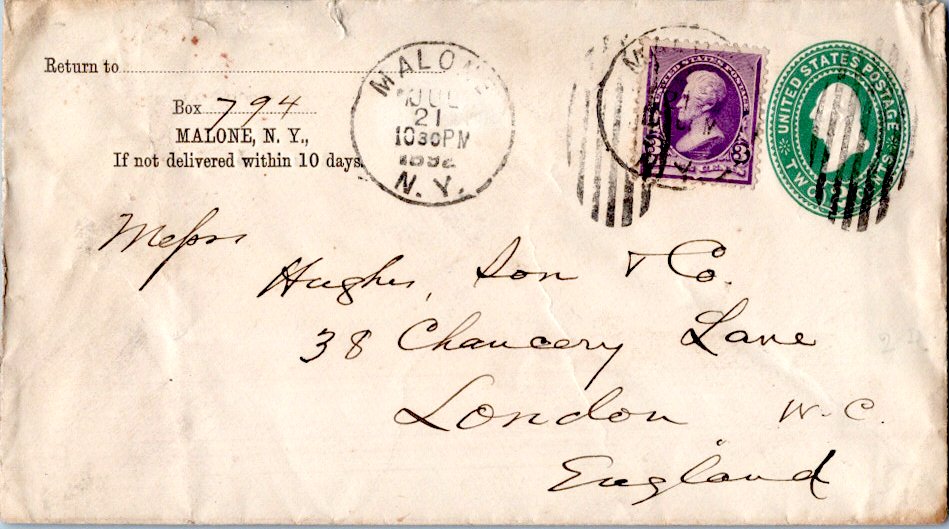 Return to
Box 794
MALONE, N. Y.,
If not delivered within 10 days.
MALONE
JUL
21
1030PM
1892
N.Y.
UNITED STATES POSTAGE
3 3
CENTS
UNITED STATES POSTAGE
TWO CENTS
Messrs
Hughes, Son & Co.
38 Chancery Lane
London W. C.
England